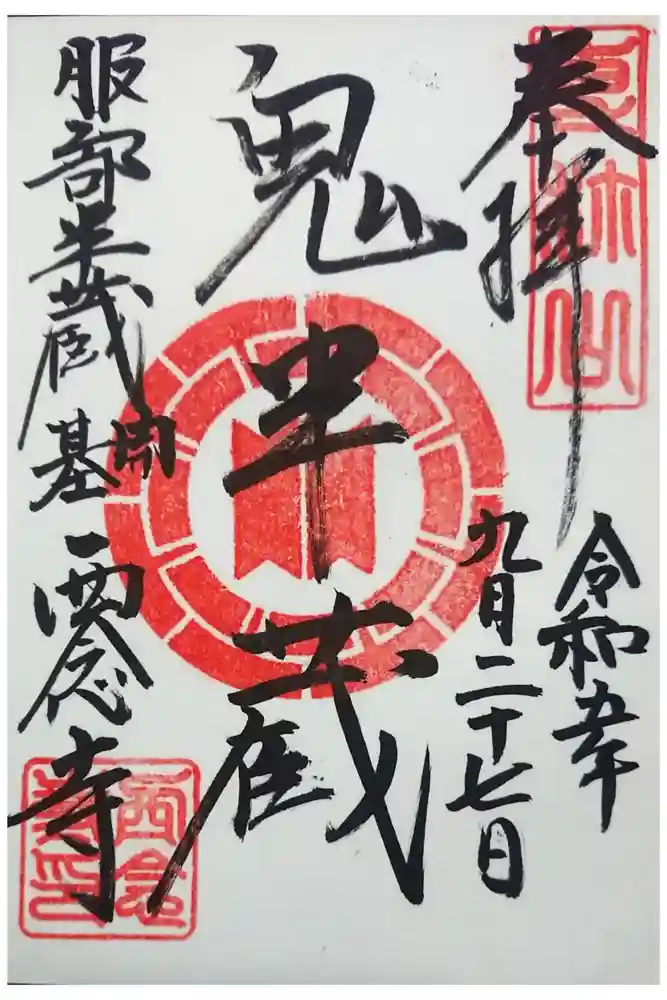 奉拝
令和五年
九月二十七日
鬼半蔵
服部半蔵開基
西念寺
西念寺印